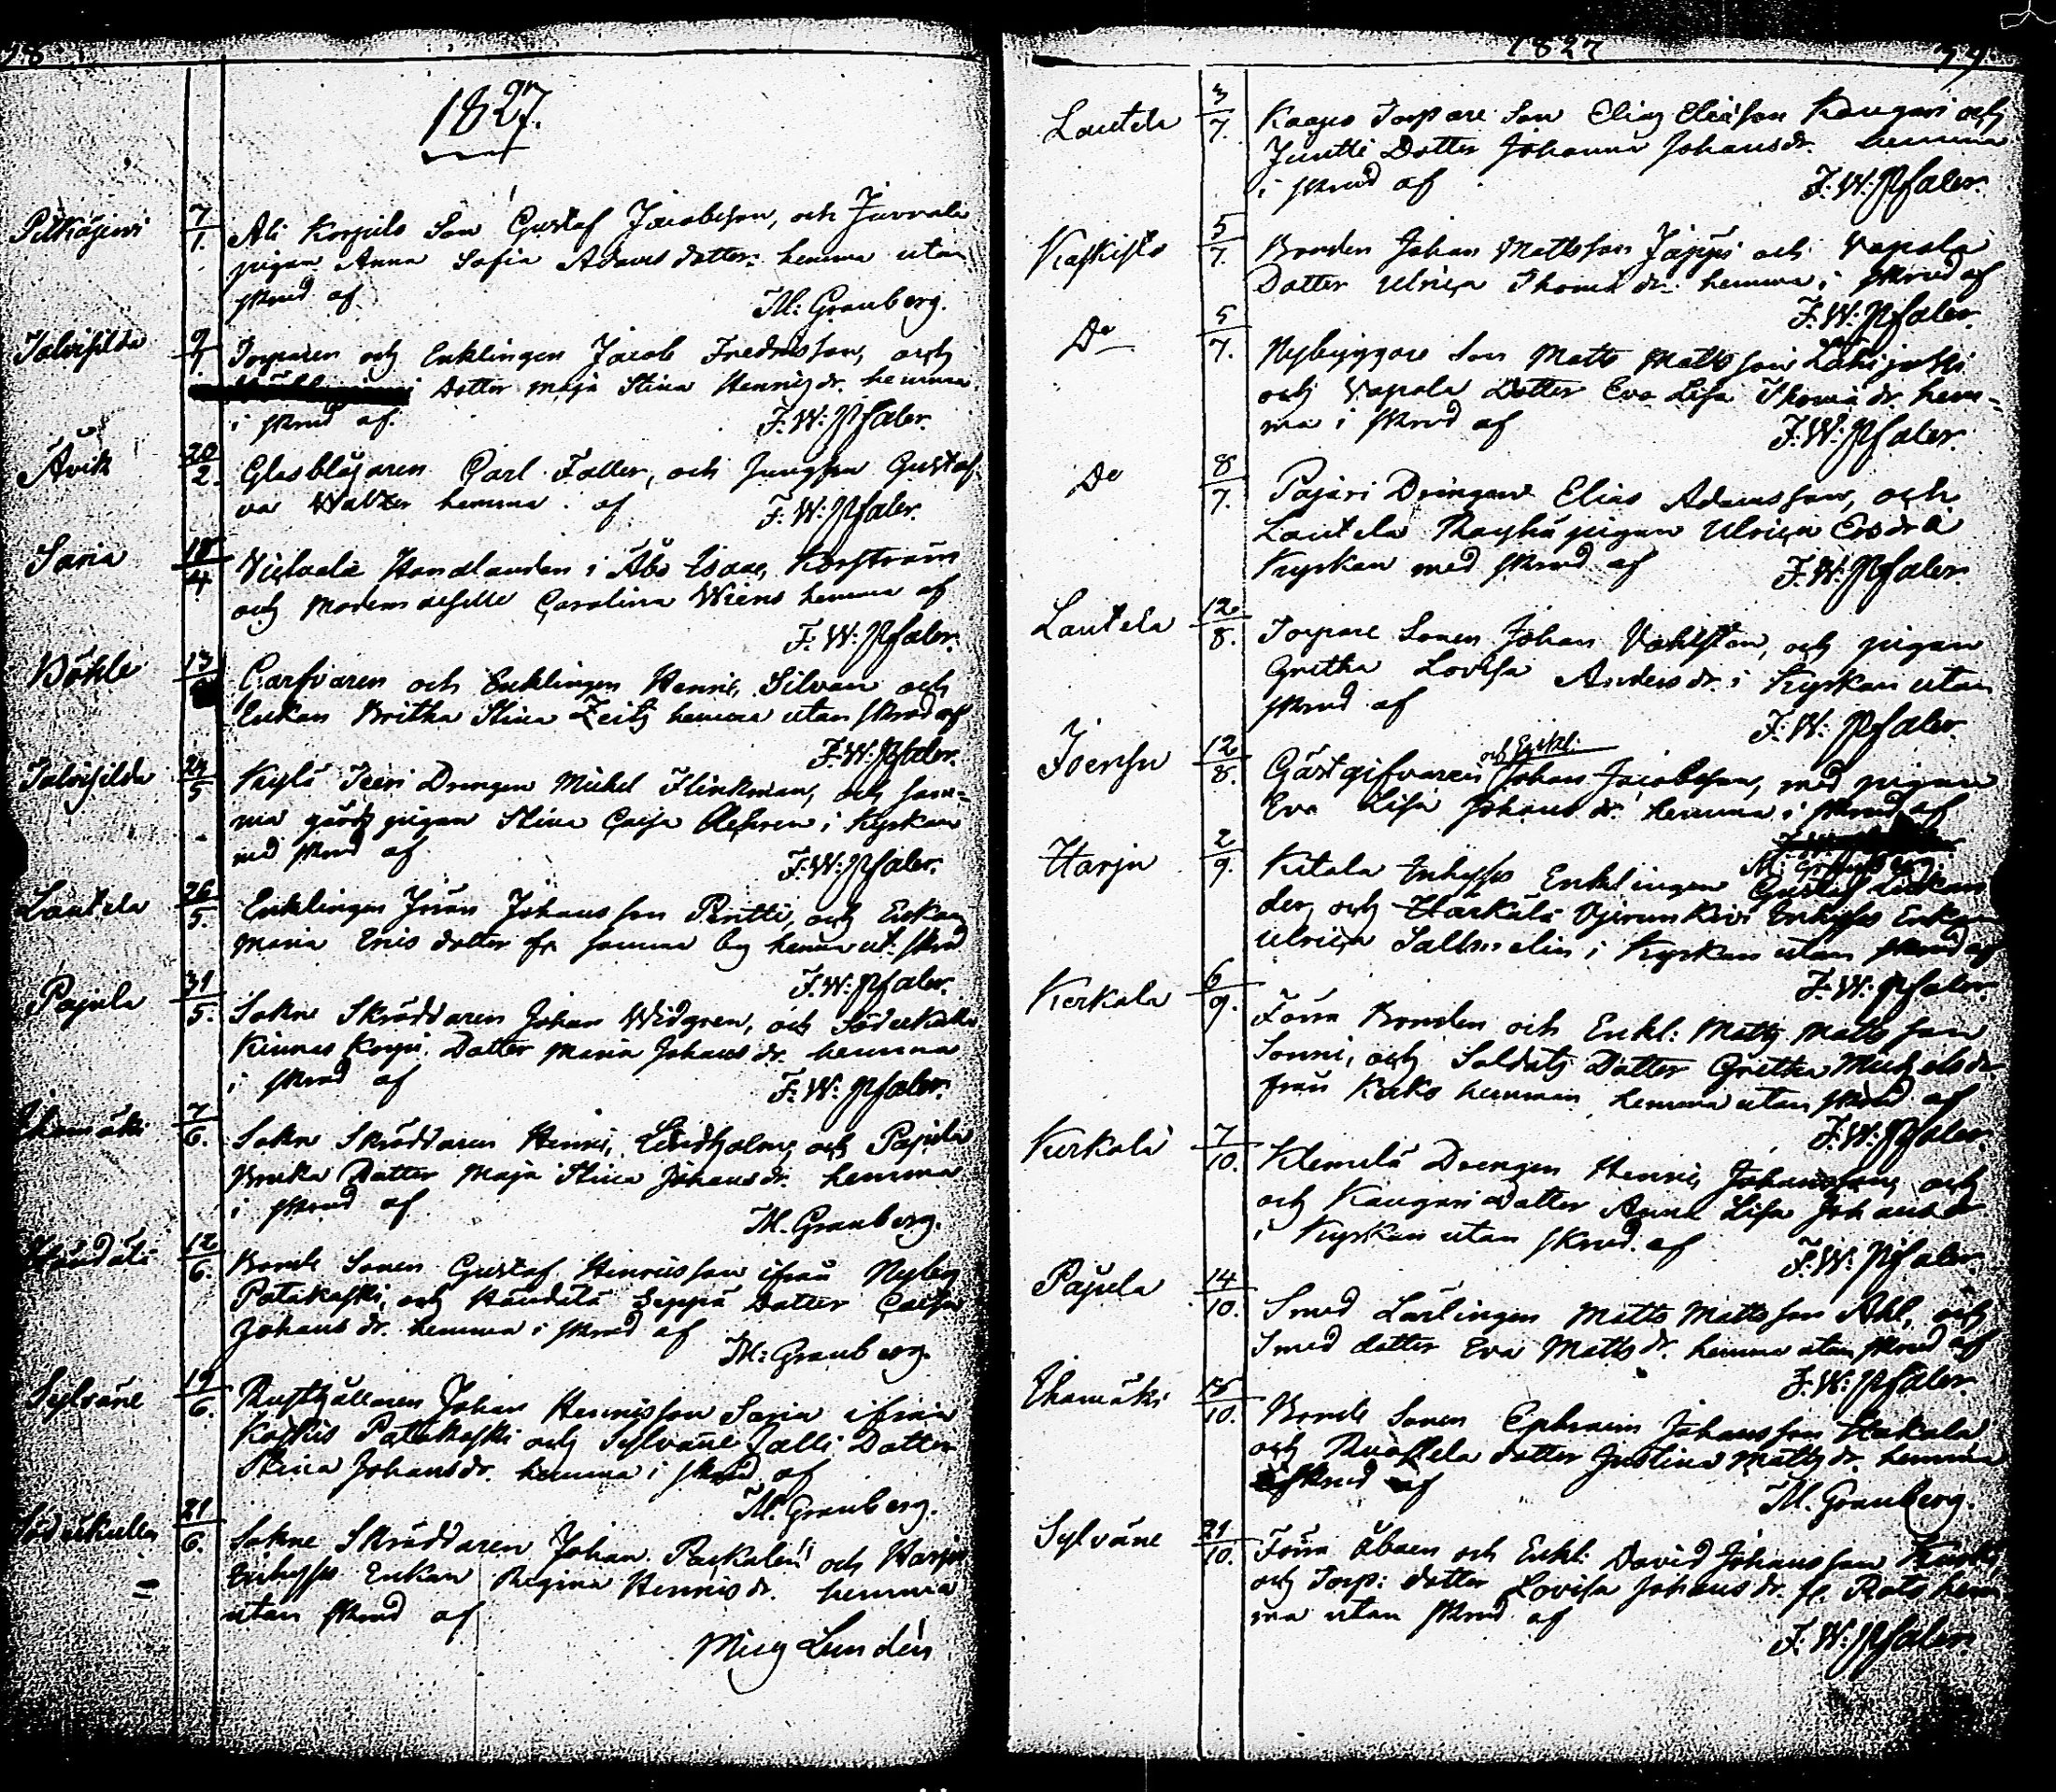 28
1827.
Pitkäjervi 7/1. Ali Korpilo Son Gustaf Jacobsson, och Juvvala
pigan Anna Sofia Adamsdotter: hemma utan
skrud af
M: Granberg.
Talvisilda 9/1. Torparen och Enklingen Jacob Fredriksson, och
Dotter Maja Stina Henrics dr. hemma
i skrud af.
F. W: Pfaler.
Åvik 20/2. Glasblåsaren Carl Faller, och Jungfru Gustaf-
va Walter hemma af
F: W: Pfaler.
Saria 18/4 Handlanden i Åbo Isaac Korsström
och Mademoiselle Carolina Wiens hemma af
F. W: Pfaler.
Böhle 13 Garfvaren och Enklingen Henric Silvan och
Enkan Britha Stina Zeitz hemma utan skrud af
F. W: Pfaler.
Talvisilda 24/5 Drengen Michel Flinkman, och sam-
ma gårds pigan Stina Caisa i Kyrkan
med skrud af
F: W: Pfaler.
Lautela 26/5. Enklingen Jöran Johansson Pentti, och Enkan
Maria Ericsdotter fr samma by hemma ut. skrud
F. W: Pfaler.
Pajula 31/5. Sokne Skräddaren Johan Widgren, och Söderkulla
Kinnas Korpi Dotter Maria Johans dr. hemma
i skrud af
F. W: Pfaler.
7/6. Sokne Skräddaren Henric Lindholm, och Pajula
Dotter Maja Stina Johans dr. hemma
i skrud af
M. Granberg.
12/6. Bonde Sonen Gustaf Henricsson ifrån Nyby
Patakoski, och Seppä Dotter Caisa
Johans dr. hemma i skrud af
M: Granberg.
Sylväne 19/6. Rusthållaren Johan Henricsson Saria ifrån
Koskis Patakoski och Sylväne Jalli Dotter
Stina Johansdr. hemma i skrud af
M. Granberg.
Söderkulla 21/6. Sokne Skräddaren Johan Paskalin och Harju
Inhyses Enkan Regina Henricsdr. hemma
utan skrud af
Lundén
1827
29.
Lautela 3/7. Torpare Son Elias Eliasson Kangari och
Juntti Dotter Johanna Johansdr. hemma
i skrud af
F: W: Pfaler.
Koskisto 5/7. Bonden Johan Mattsson Jäppi och Vapala
Dotter Ulrica Thomä dr. hemma i skrud af
F. W: Pfaler.
Do 5/7. Nybyggare Son Matts Mattsson
och Vapala Dotter Eva Lisa Thomä dr. hem-
ma i skrud af
F: W: Pfaler.
Do 8/7. Pajari Drengen Elias Adamsson, och
Lautela pigan Ulrica i
Kyrkan med skrud af
F. W. Pfaler
Lautela 12/8. Torpare Sonen Johan Vahlsten, och pigan
Gretha Lovisa Anders dr. i Kyrkan utan
skrud af
F: W: Pfaler.
Joensu 12/8. Gästgifvaren och Enkl. Johan Jacobsson, med pigan
Eva Lisa Johans dr. hemma i skrud af
M: Granberg.
Harju 2/9. Kitala Inhyses Enklingen Gustaf
der, och Härkälä Inhyses Enkan
Ulrica i Kyrkan utan skrud af
F: W: Pfaler.
Kerkola 6/9. Förra Bonden och Enkl: Matts Matts son
Sonni, och Soldats Dotter Gretha Michelsdr
från hemman hemma utan skrud af
F. W: Pfaler.
Kerkola 7/10. Klemelä Drengen Henric Johansson, och
och Kangari Dotter Anna Lisa Johans dr
i Kyrkan utan skrud. af
F. W: Pfaler.
Pajula 14/10. Smed Lärlingen Matts Mattsson Ahl, och
Smed dotter Eva Matts dr. hemma utan skrud af
F. W: Pfaler.
15/10. Bonde Sonen Ephraim Johansson Hakala
och dotter Justina Matts dr. hemma
i skrud af
M. Granberg.
Sylväne 21/10. Förra Åboen och Enkl: David Johansson
och Torp: dotter Lovisa Johans dr. fr. Rots hem
ma utan skrud af
F. W: Pfaler.